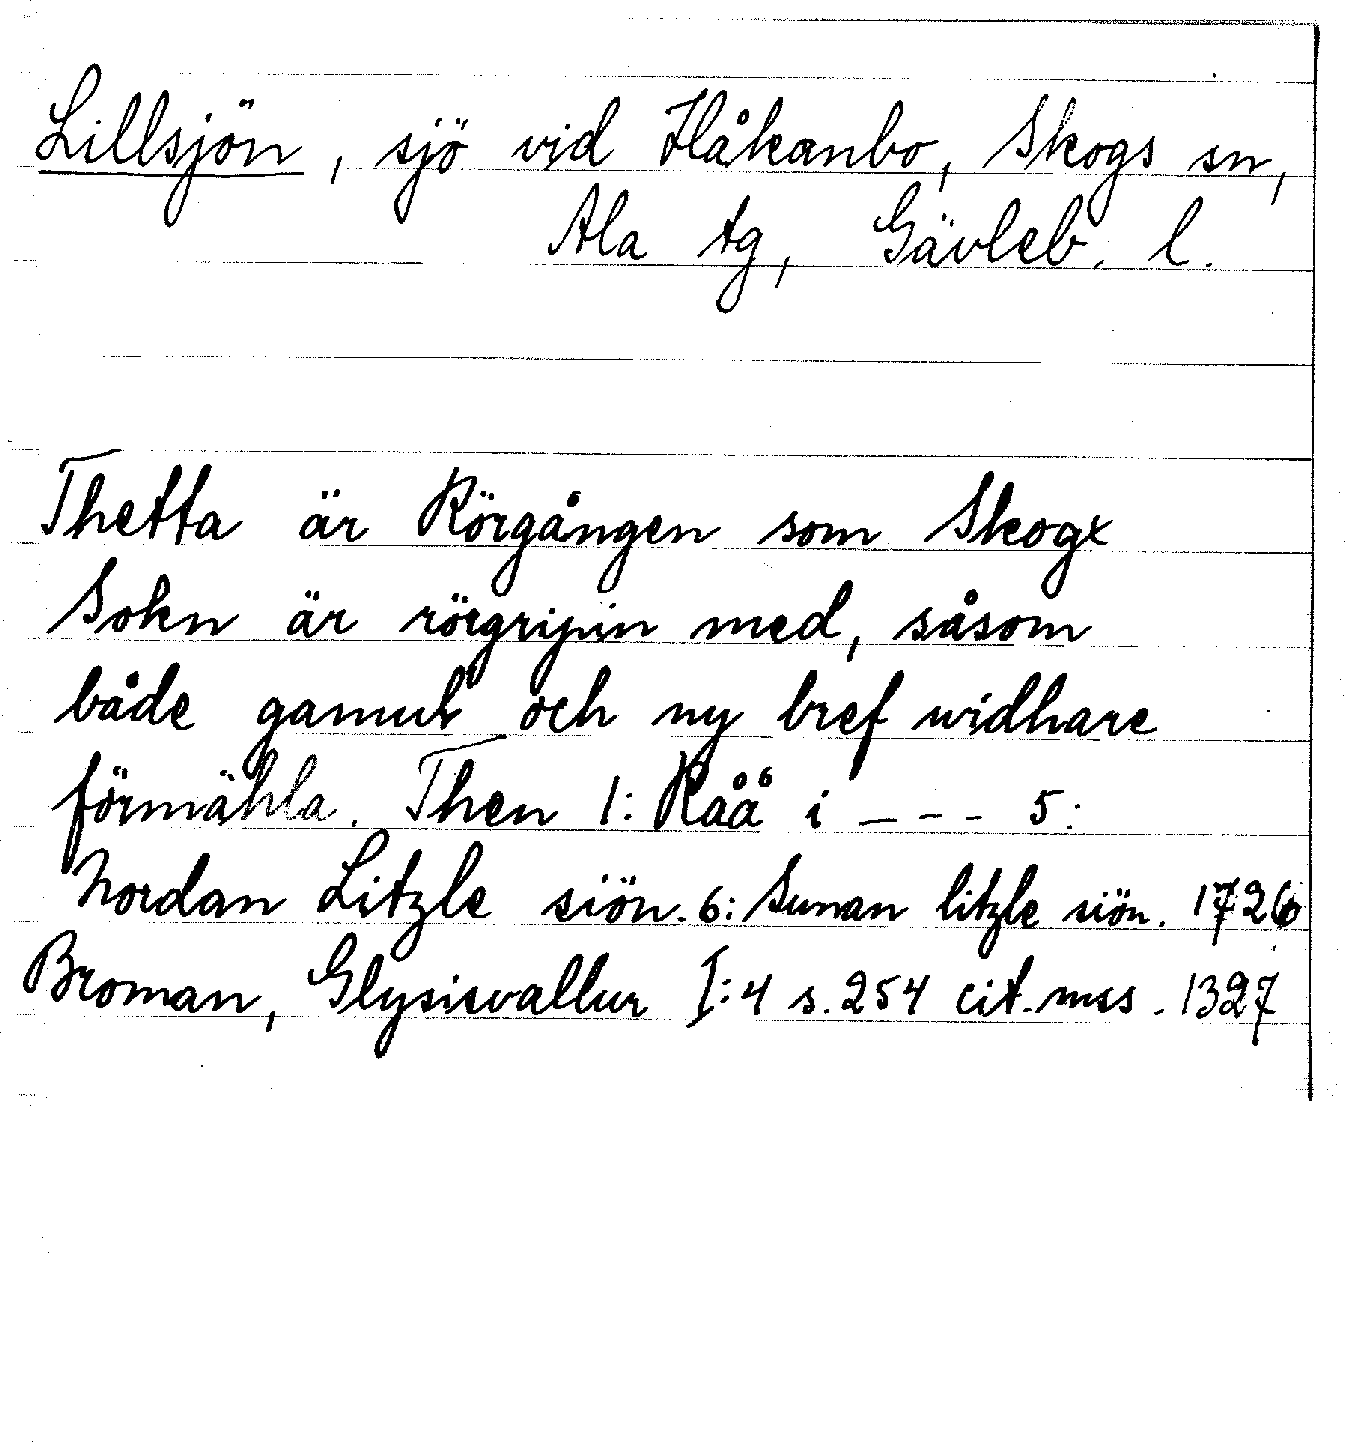 Lillsjön, sjö vid Håkanbo, Skogs sn,
Ala tg, Gävleb. l.
Thetta är Rörgången som Skogx
Sokn är rörgripin med, såsom
både gamul och ny bref widhare
förmähla. Then 1: Råå i --- 5:
Nordan Litzle siön. 6: Sunan litzle siön. 1726
Broman, Glysisvallur I:4 s. 254 cit. mss. 1327